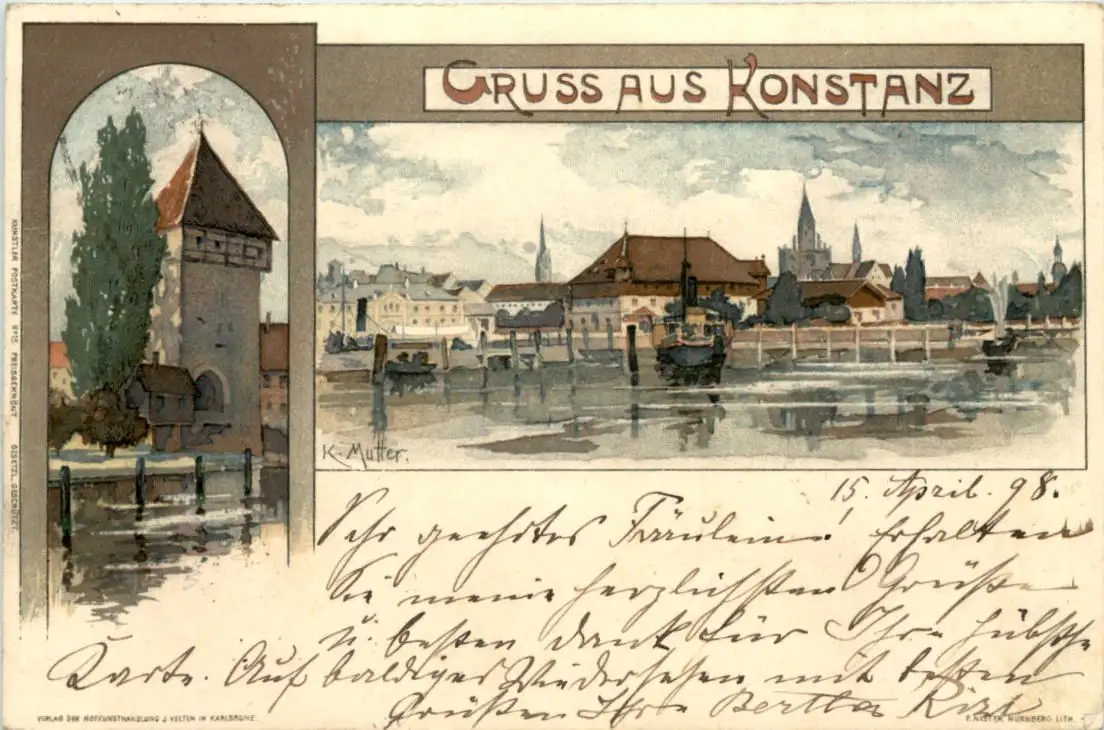 GRUSS AUS KONSTANZ
K. Mutter.
15. April. 98.
Sehr geehrtes Fräulein! Erhalten
Sie meine herzlichsten Grüße
u. besten Dank für Ihre hübsche
Karte. Auf baldiges Wiedersehen mit besten
Grüßen Ihre Bertha
KÜNSTLER POSTKARTE PREISGEKRÖNT GESETZL. GESCHÜTZT.
VERLAG DER HOFKUNSTHANDLUNG J. VELTEN IN KARLSRUHE.
E. NISTER NÜRNBERG LITH.